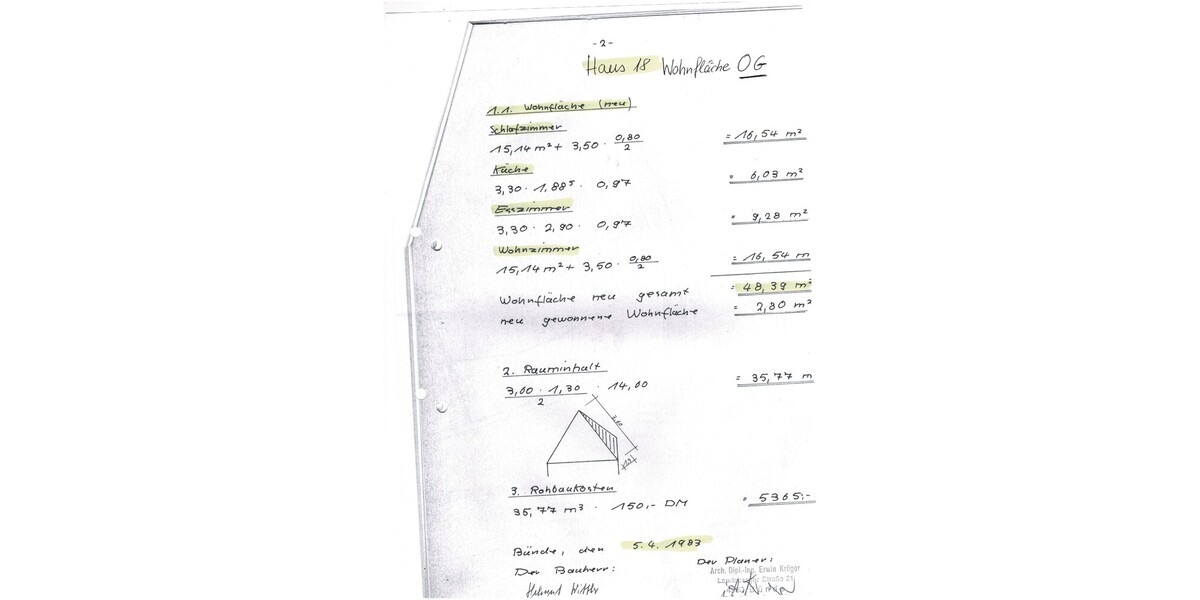 -2-
Haus 18 Wohnfläche OG
1.1. Wohnfläche (neu)
Schlafzimmer
15,14 m² + 3,50 · 0,80/2 = 16,54 m²
Küche
3,30 · 1,88⁵ · 0,97 = 6,03 m²
Esszimmer
3,30 · 2,90 · 0,97 = 9,28 m²
Wohnzimmer
15,14 m² + 3,50 · 0,80/2 = 16,54 m
Wohnfläche neu gesamt = 48,39 m²
neu gewonnene Wohnfläche = 2,80 m²
2. Rauminhalt
3,00 · 1,30/2 · 14,00 = 35,77 m
3. Rohbaukosten
35,77 m³ · 150,- DM = 5365,-
Bünde, den 5.4. 1983
Der Bauherr: Der Planer:
Arch. Dipl.-Ing. Erwin Kröger
Straße 21
Helmut